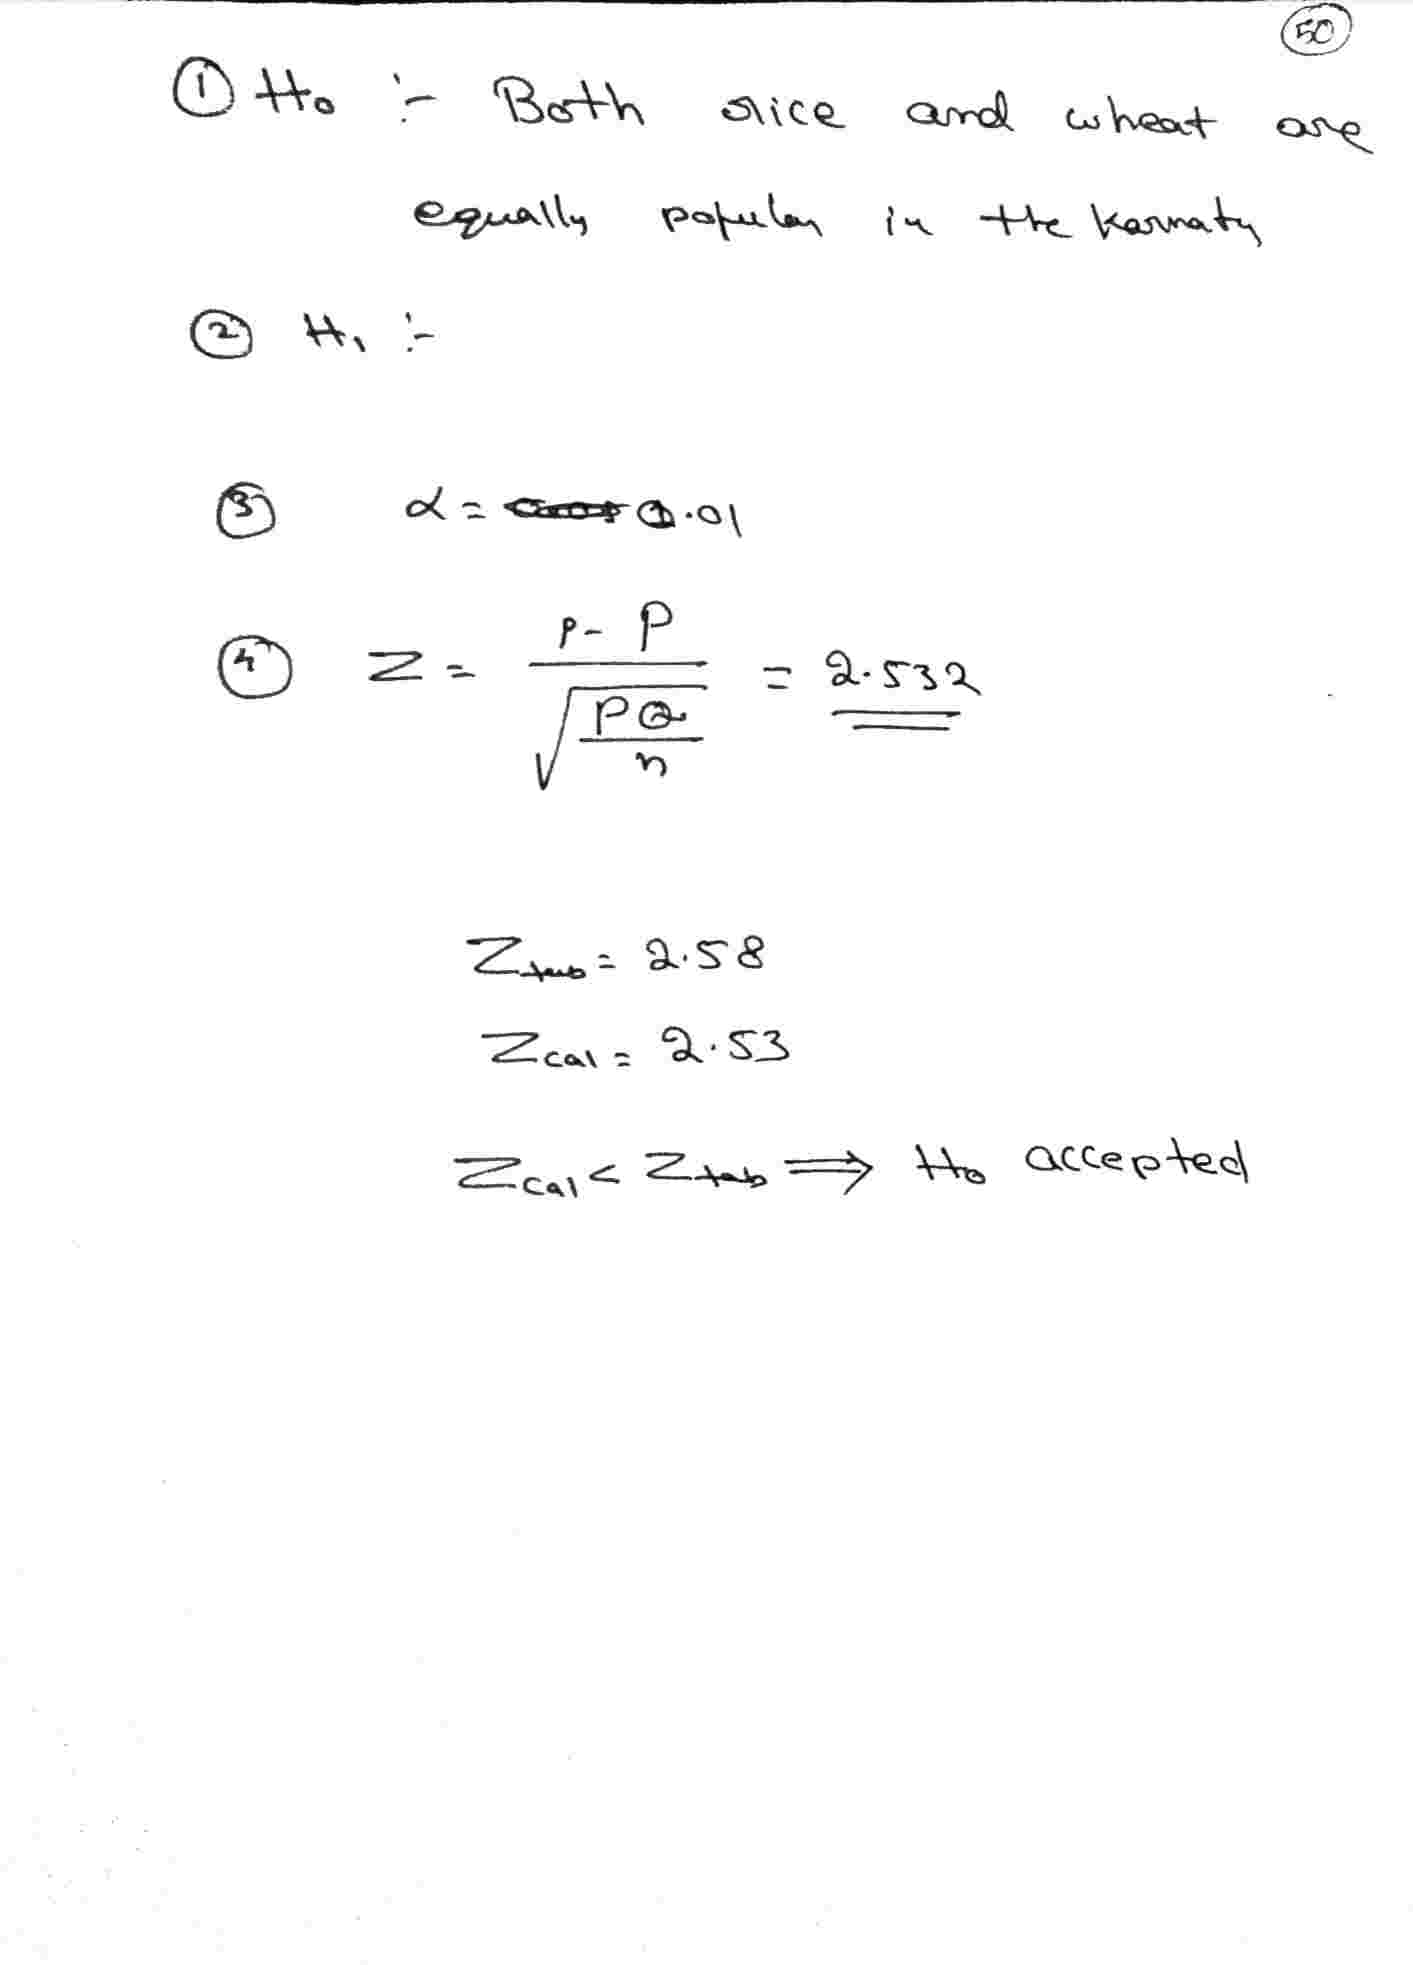 50
① H₀ :- Both rice and wheat are
equally popular in the Karnatu
② H₁ :-
③ α = 0.01
④ Z = p - P / √(PQ/n) = 2.532
Ztab = 2.58
Zcal = 2.53
Zcal < Ztab ⇒ H₀ accepted